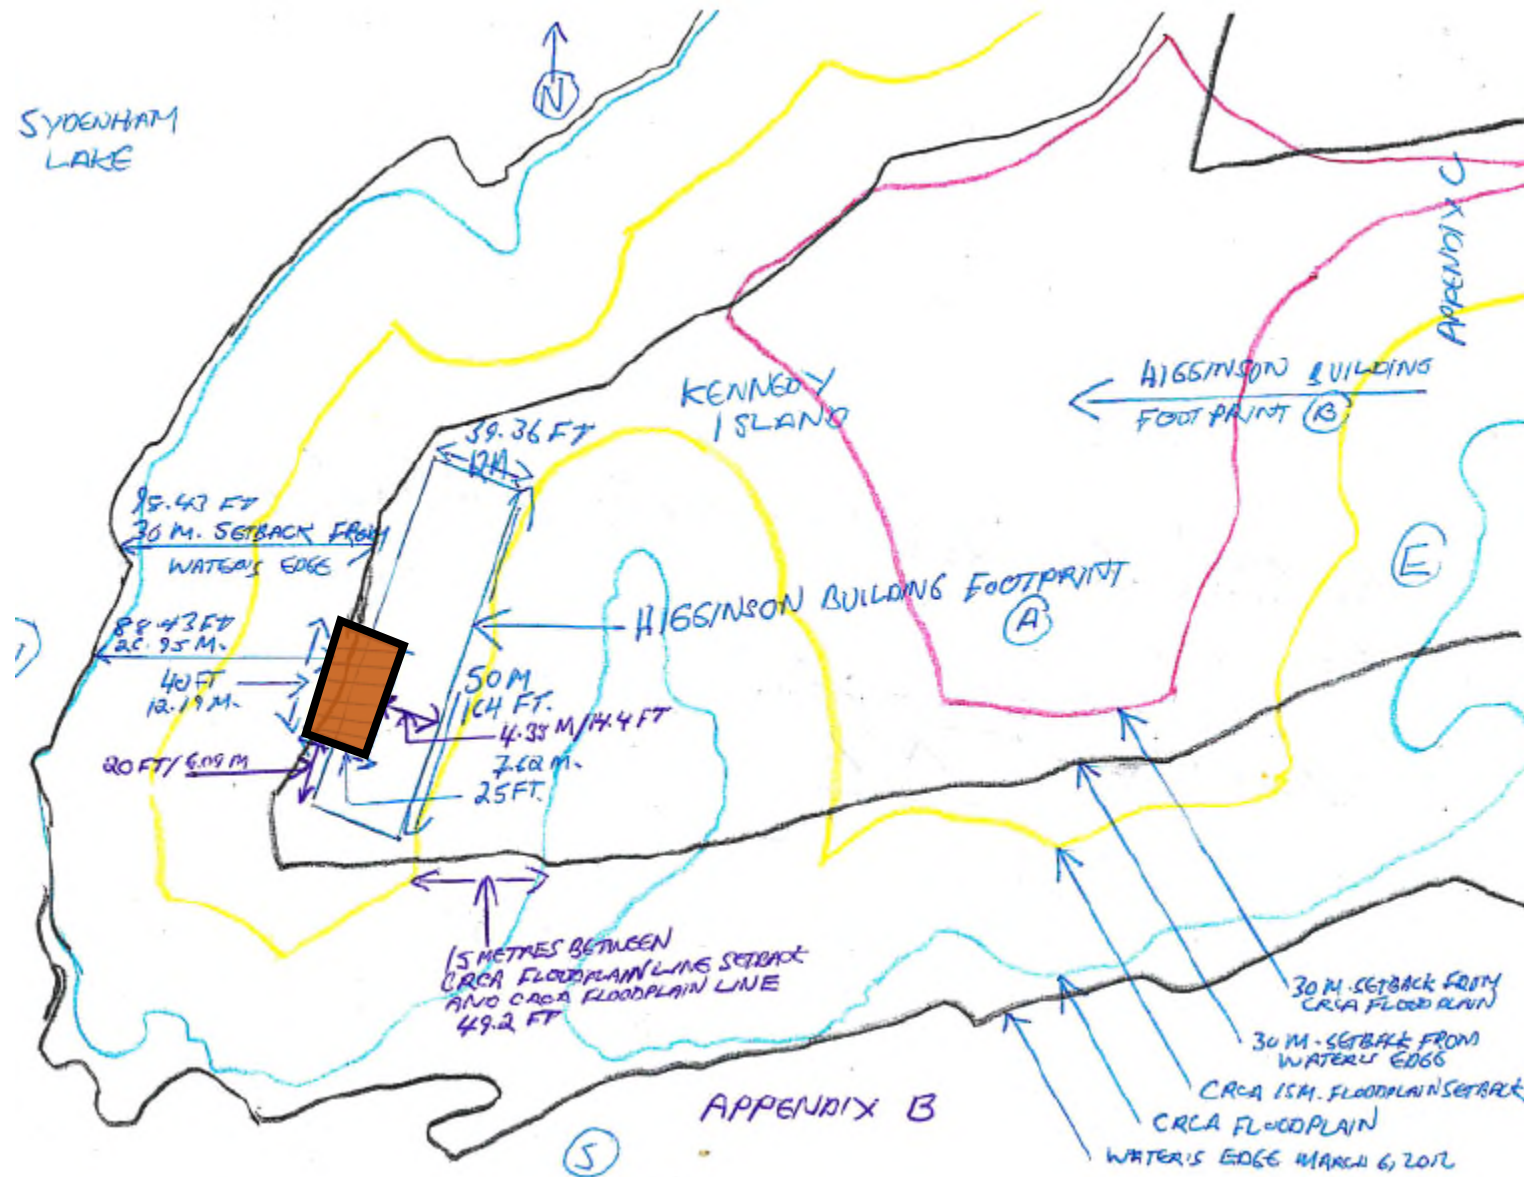 N
SYDENHAM
LAKE
APPENDIX C
HIGGINSON BUILDING
FOOTPRINT B
KENNEDY
ISLAND
39.36 FT
12M
98.43 FT
30 M. SETBACK FROM
WATER'S EDGE
E
HIGGINSON BUILDING FOOTPRINT
A
88.43 FT
26.95 M.
40 FT
12.19 M.
50 M
164 FT.
4.38 M/14.4 FT
20 FT/6.09 M
7.62 M.
25 FT.
15 METRES BETWEEN
CRCA FLOODPLAIN LINE SETBACK
AND CRCA FLOODPLAIN LINE
49.2 FT
30 M. SETBACK FROM
CRCA FLOODPLAIN
30 M. SETBACK FROM
WATER'S EDGE
CRCA 15M. FLOODPLAIN SETBACK
CRCA FLOODPLAIN
WATER'S EDGE MARCH 6, 2012
APPENDIX B
S